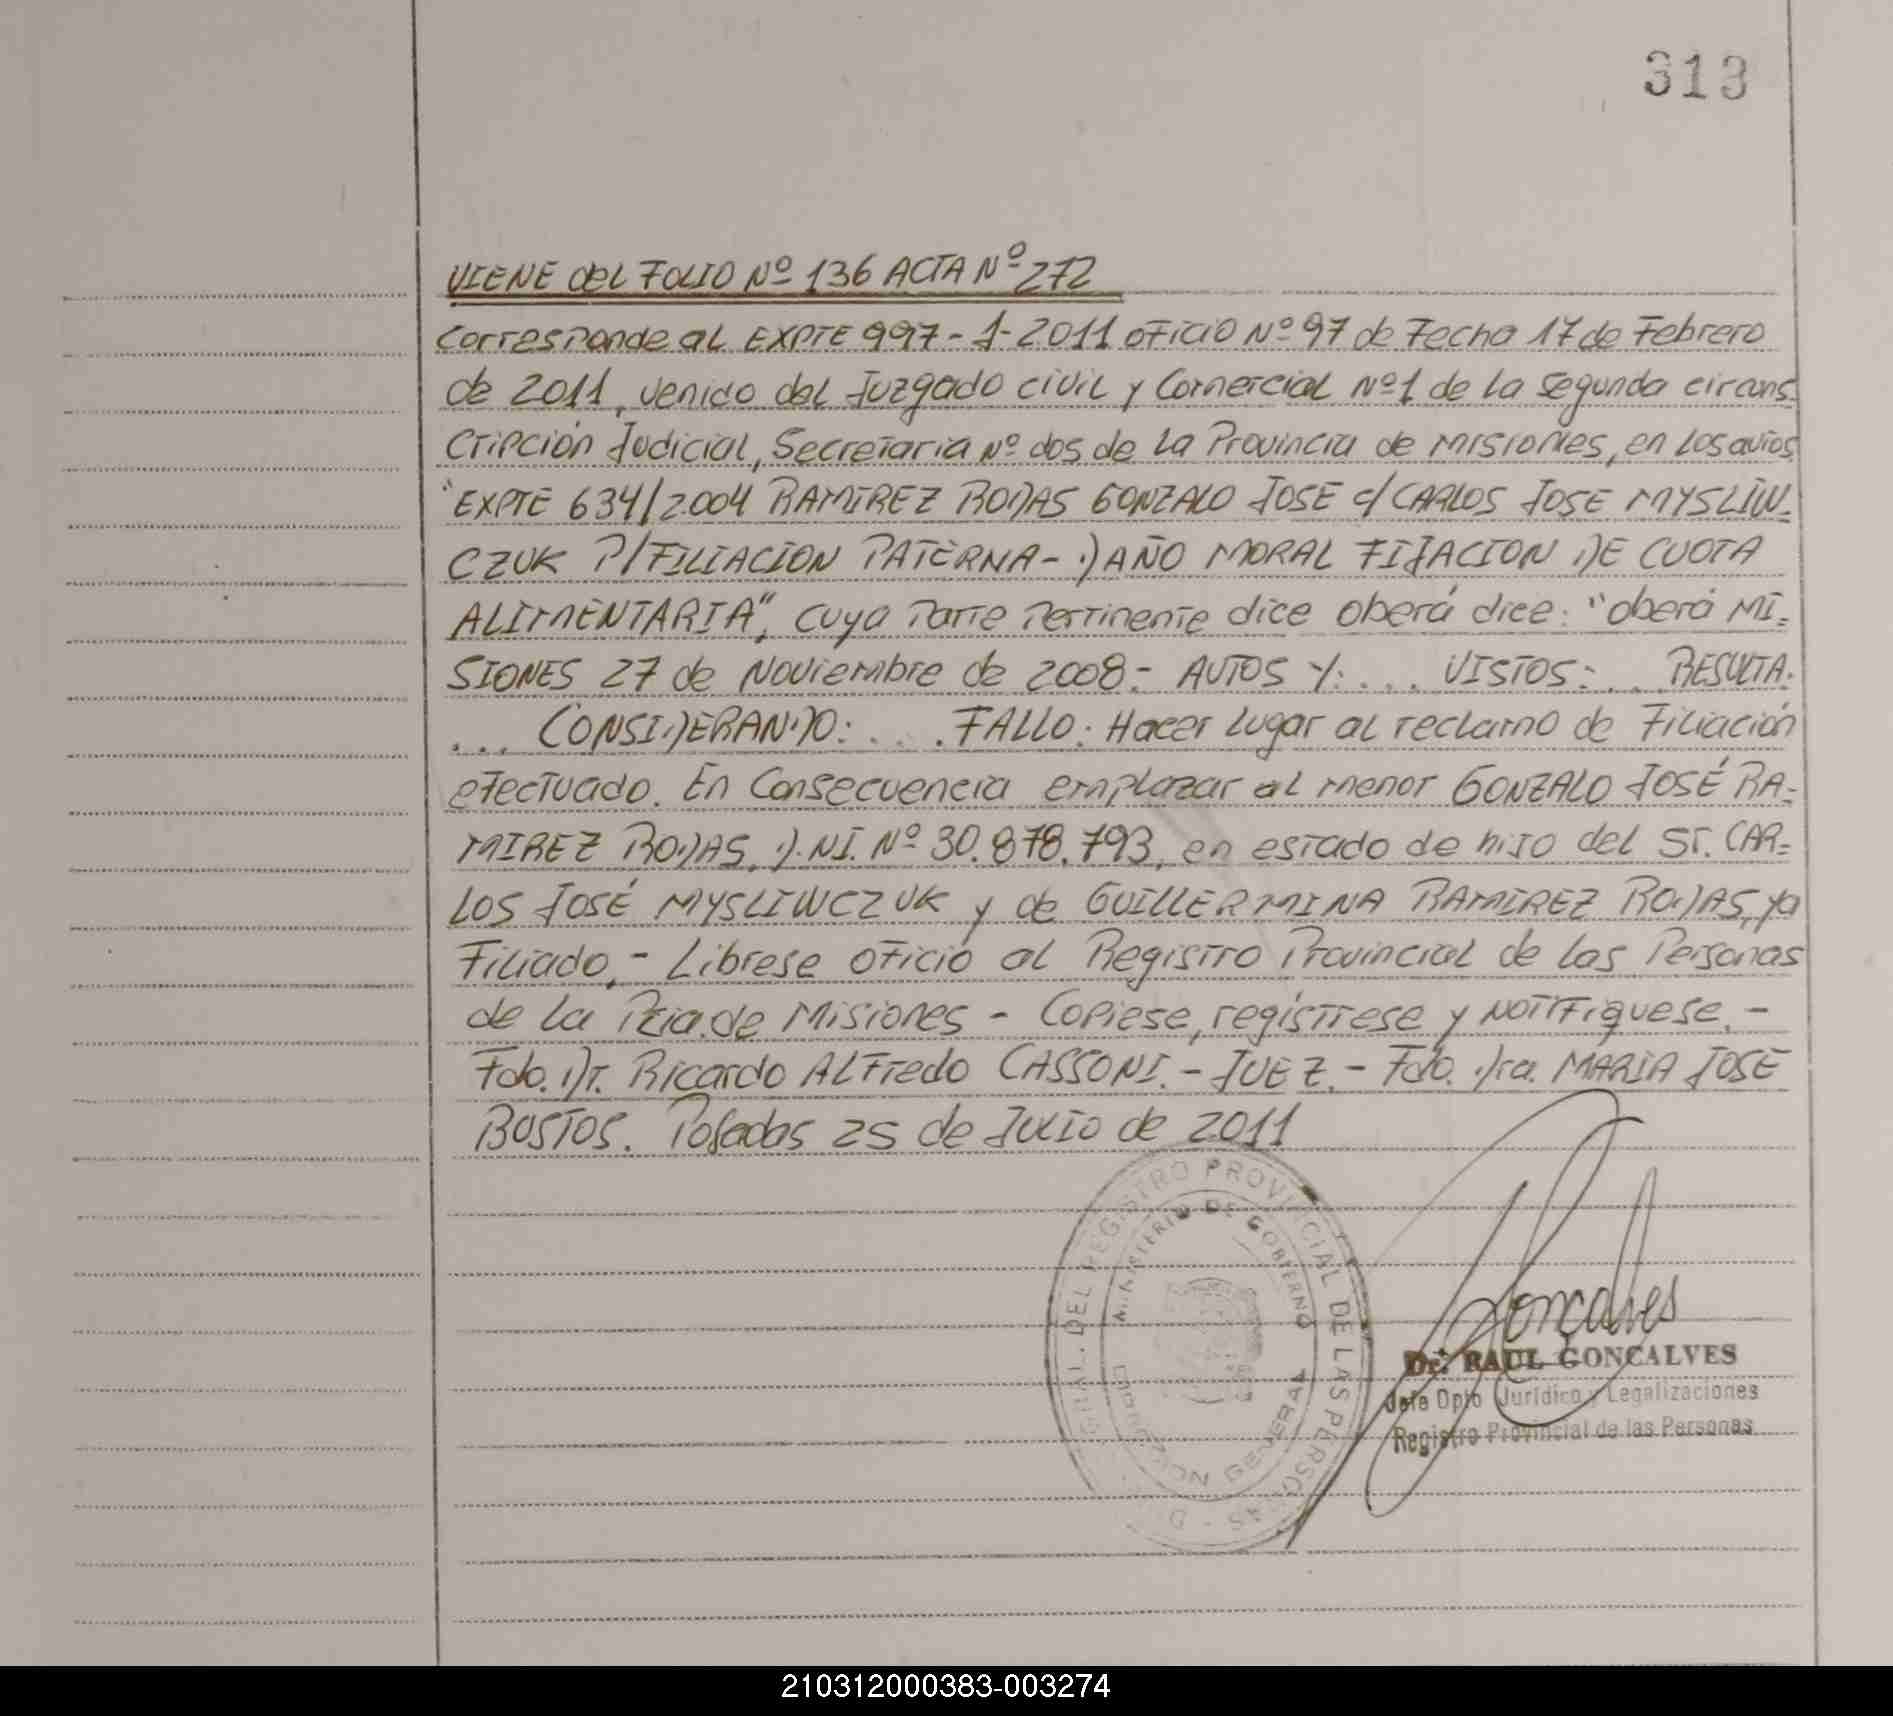 313
VIENE del FOLIO Nº 136 ACTA Nº 272
Corresponde al EXPTE 997-1-2011 oficio Nº 97 de Fecha 17 de Febrero
de 2011, venido del Juzgado civil y Comercial Nº1 de la segunda circuns-
cripción Judicial, Secretaria Nº dos de la Provincia de Misiones, en los autos
"EXPTE 634/2004 RAMIREZ RODAS GONZALO JOSE c/ CARLOS JOSE MYSLIW-
CZUK P/FILIACION PATERNA- DAÑO MORAL FIJACION DE CUOTA
ALIMENTARIA", cuya Parte Pertinente dice oberá dice: "oberá MI-
SIONES 27 de Noviembre de 2008.- AUTOS Y:... VISTOS:... RESULTA.
... CONSIDERANDO:.... FALLO: Hacer lugar al reclamo de Filiación
efectuado. En Consecuencia emplazar al menor GONZALO JOSÉ RA-
MIREZ RODAS, D.NI. Nº 30.878.793, en estado de hijo del Sr. CAR-
LOS JOSÉ MYSLIWCZUK y de GUILLERMINA RAMIREZ RODAS, ya
Filiado,- Librese oficio al Registro Provincial de las Personas
de la Pcia.de Misiones - Copiese, regístrese y NOTIFiquese.-
Fdo. Dr. Ricardo ALFredo CASSONI.- JUEZ.- Fdo. Dra. MARIA JOSE
BUSTOS. Posadas 25 de Julio de 2011
DEL REGISTRO PROVINCIAL DE LAS PERSONAS
MINISTERIO DE GOBIERNO
GENERAL
Goncalves
Dr. RAUL GONCALVES
Jefe Dpto Jurídico y Legalizaciones
Registro Provincial de las Personas
210312000383-003274